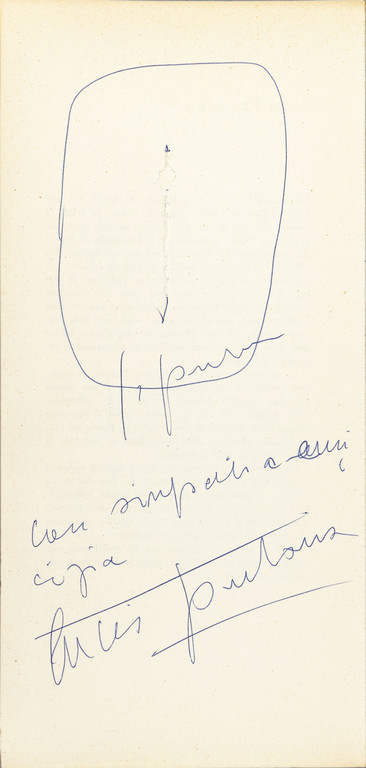 l. fontana
con simpatia e ami
cizia
lucio fontana